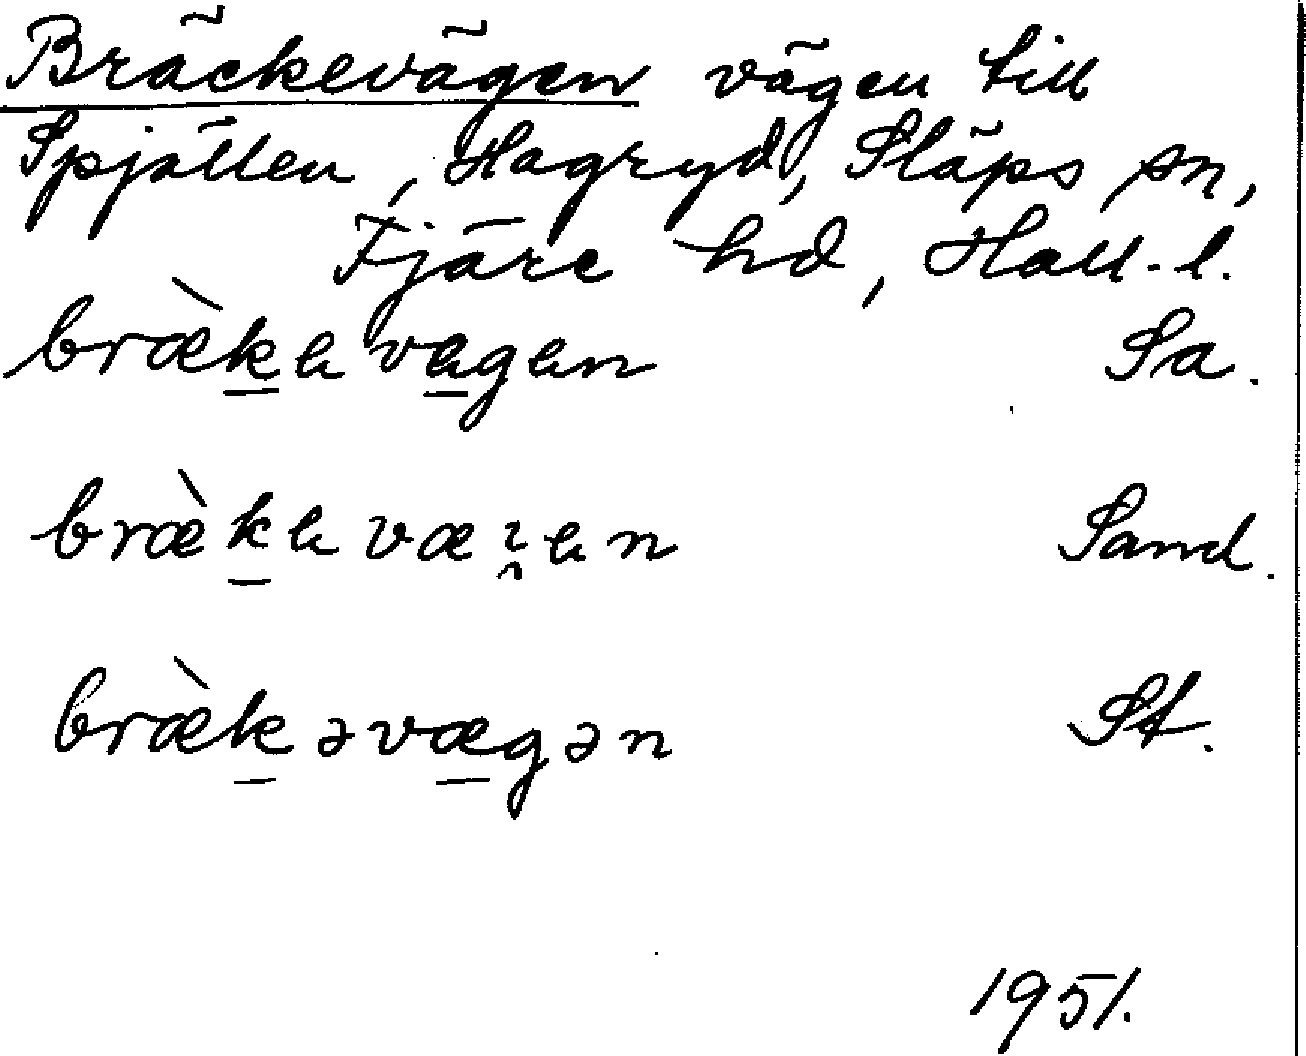 Bräckevägen vägen till
Spjällen, Hagryd, Släps sn,
Fjäre hd, Hall. l.
bræ̀kevægen Sa.
bræ̀kevæı̯en Sand.
bræ̀kəvægən St.
1951.